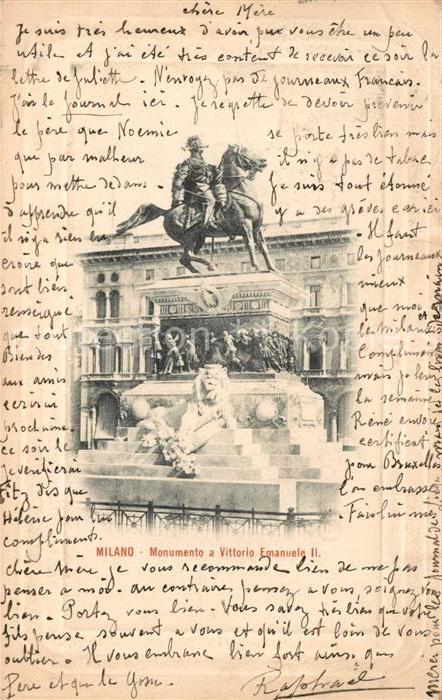 chère Mère
Je suis très heureux d'avoir pu vous être un peu
utile et j'ai été très content de recevoir ce soir la
lettre de Juliette. N'envoyez pas de journeaux Francais.
J'ai le Journal ici. Je regrette de devoir prévenir
le père que Noemie se porte très bien mais
que par malheur il n'y a pas de tabac
pour mettre dedans. Je suis tout étonné
d'apprendre qu'il y a des grèves car ici
il n'y a rien eu. Il faut
croire que les journeaux
sont bien mieux
renseigné que moi
que tout les Milanais
Bien des compliments
aux amis mais je leur
écrirai la semaine
prochaine. René envoie
ce soir le certificat
je vérifierai pour Bruxelles
dites que l'on embrasse
Hélène pour lui
compliment.
MILANO - Monumento a Vittorio Emanuele II.
chère Mère je vous recommande bien de ne pas
penser à moi. au contraire pensez à vous soignez vous
bien. Portez vous bien. Vous savez très bien que votre
fils pense souvent à vous et qu'il est loin de vous
oublier. Il vous embrasse bien fort ainsi que
Père et que le Gosse. Raphaël